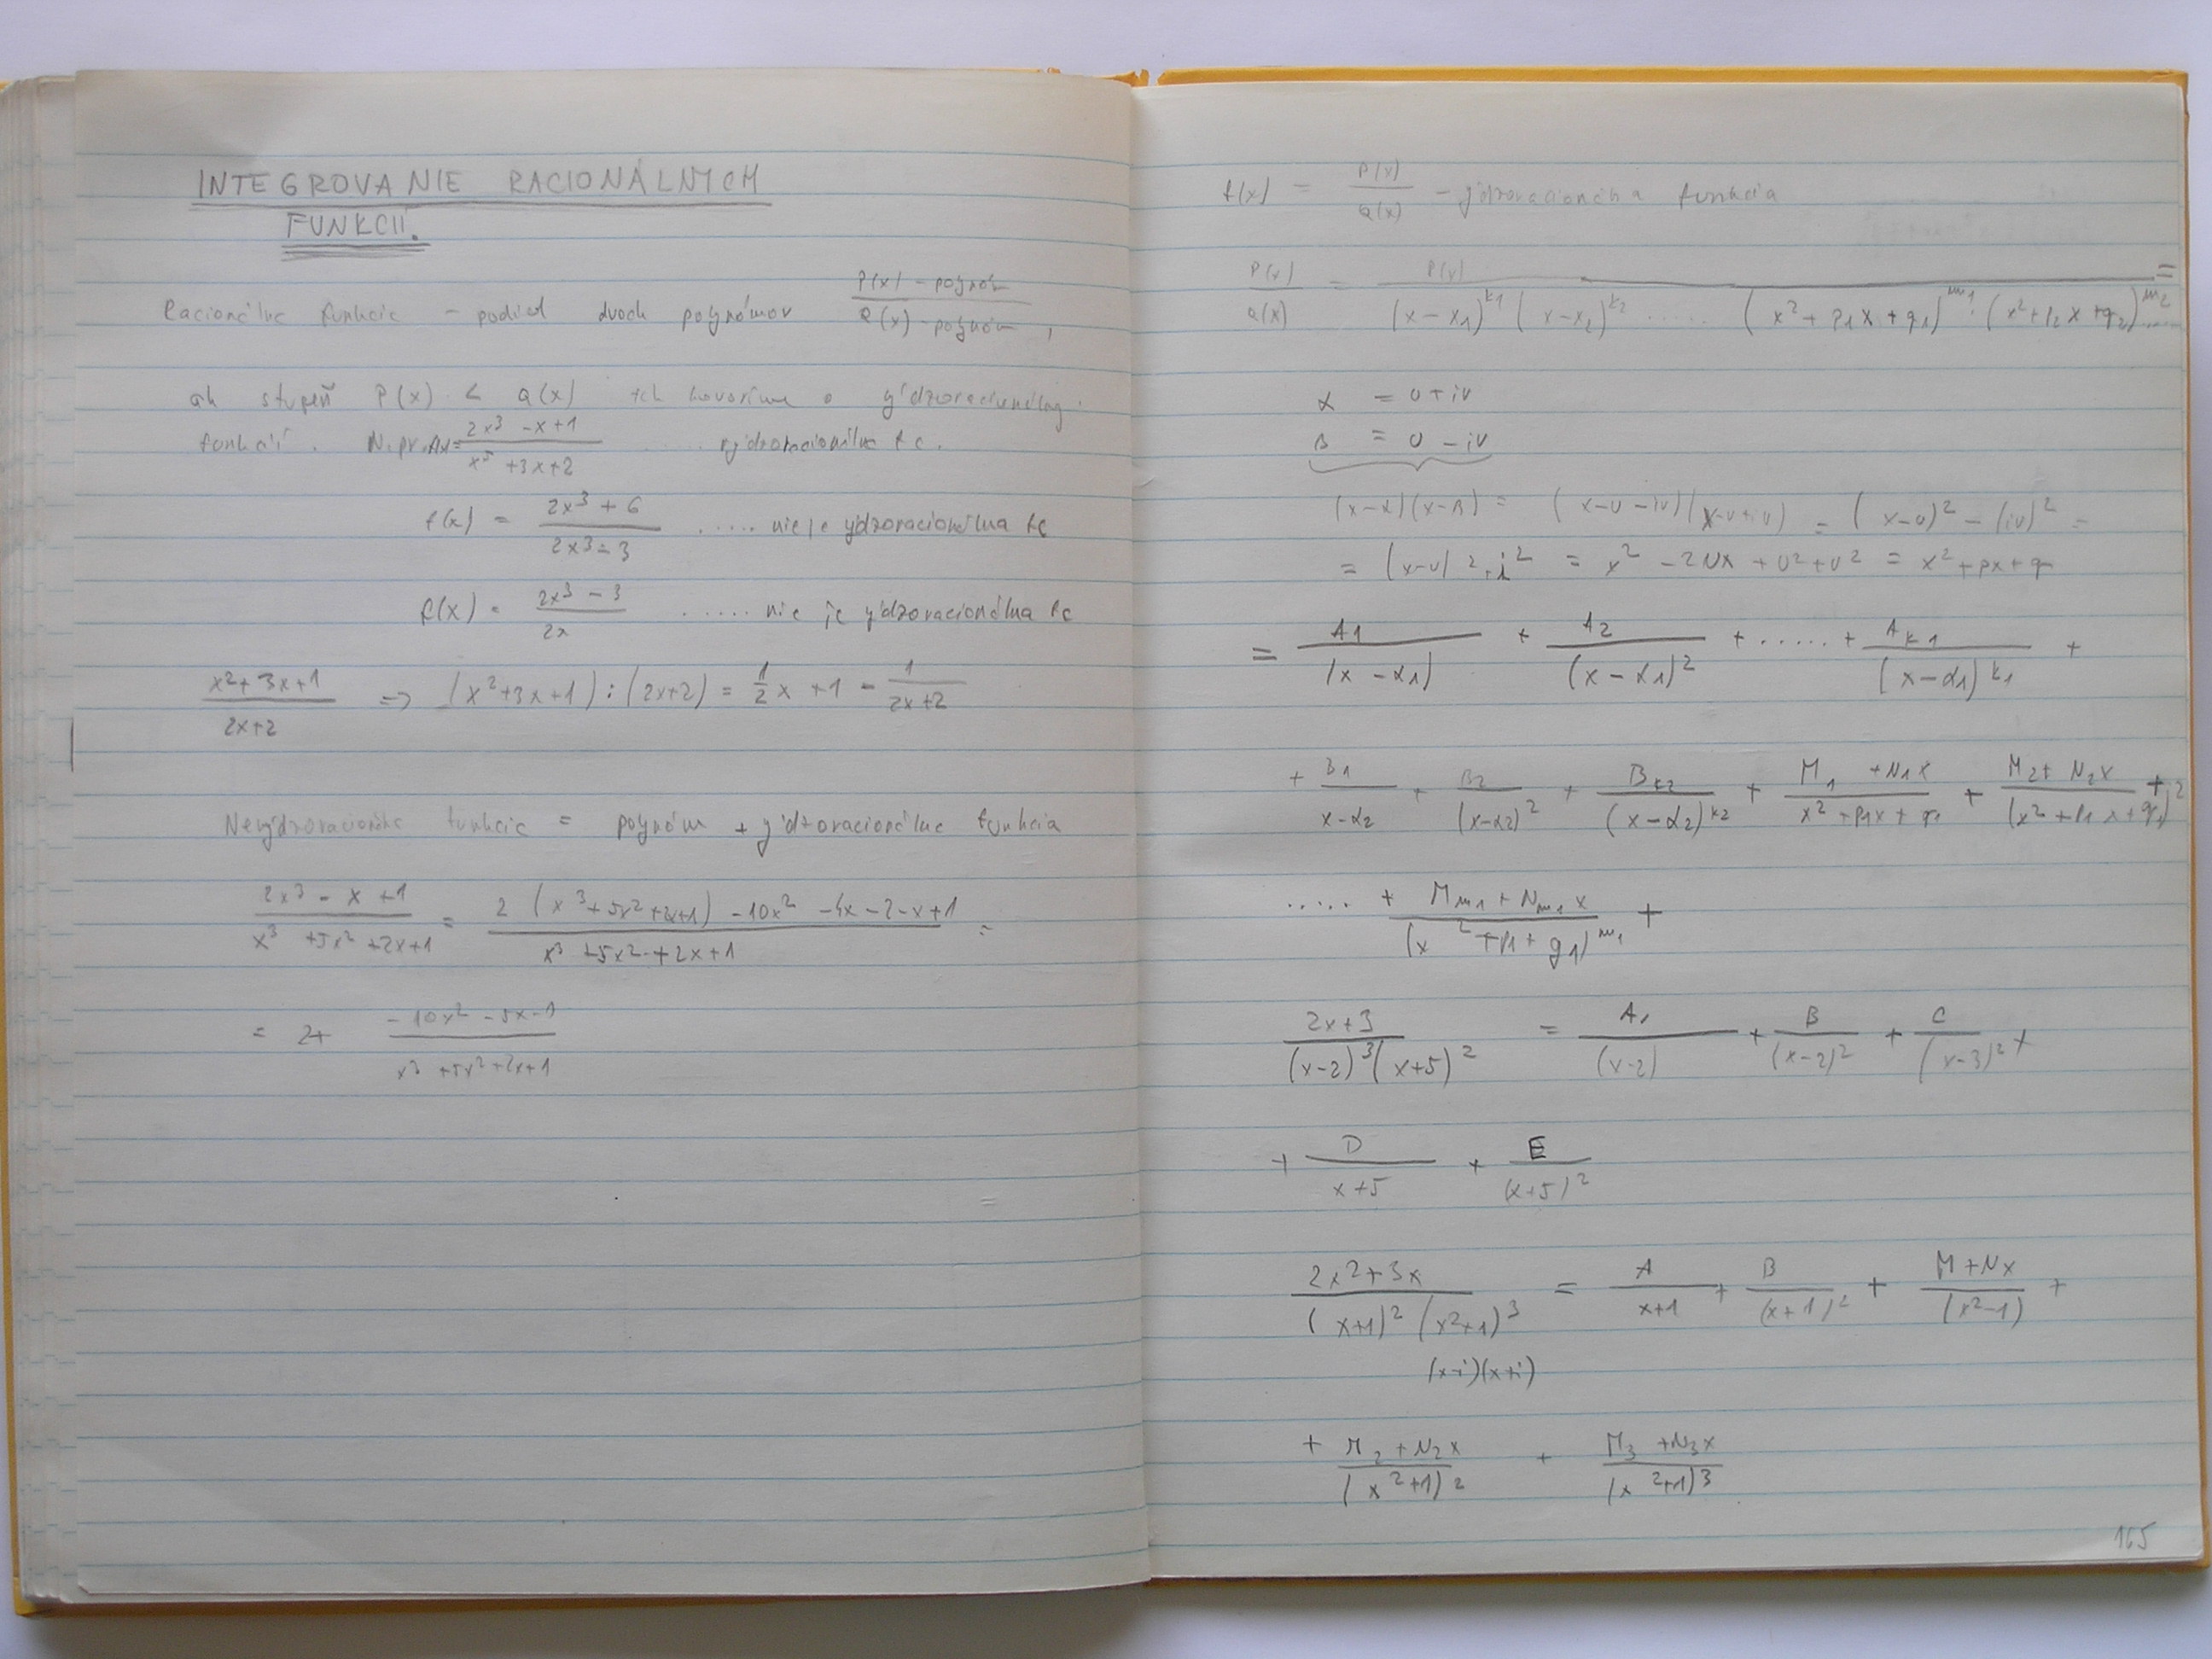 INTEGROVANIE RACIONÁLNYCH
FUNKCIÍ.
Racionálne funkcie - podiel dvoch polynómov P(x) - polynóm / Q(x) - polynóm ,
ak stupeň P(x) < Q(x) hovoríme o rýdzoracionálnej
funkcií. Napr. = 2x³ - x + 1 / x⁵ + 3x + 2 ..... rýdzoracionálne fc.
f(x) = 2x³ + 6 / 2x³ - 3 ..... nie je rýdzoracionálna fc
f(x) = 2x³ - 3 / 2x ...... nie je rýdzoracionálna fc
x² + 3x + 1 / 2x + 2 => (x² + 3x + 1) : (2x + 2) = 1/2 x + 1 - 1 / 2x + 2
Nerýdzoracionálne funkcie = polynóm + rýdzoracionálne funkcia
2x³ - x + 1 / x³ + 5x² + 2x + 1 = 2 (x³ + 5x² + 2x + 1) - 10x² - 4x - 2 - x + 1 / x³ + 5x² + 2x + 1 =
= 2 + - 10x² - 5x - 1 / x³ + 5x² + 2x + 1
f(x) = P(x) / Q(x) - rýdzoracionálna funkcia
P(x) / Q(x) = P(x) / (x - x₁)^k1 (x - x₂)^k2 ...... (x² + p₁x + q₁)^m1 . (x² + p₂x + q₂)^m2 .... =
α = u + iv
β = u - iv
(x - α)(x - β) = (x - u - iv)(x - u + iv) = (x - u)² - (iv)² =
= (x - u)² + i² = x² - 2ux + u² + v² = x² + px + q
= A₁ / (x - α₁) + A₂ / (x - α₁)² + ...... + A_k1 / (x - α₁)^k1 +
+ B₁ / x - α₂ + B₂ / (x - α₂)² + B_k2 / (x - α₂)^k2 + M₁ + N₁x / x² + p₁x + q₁ + M₂ + N₂x / (x² + p₁x + q₁)² +
..... + M_m1 + N_m1 x / (x² + p₁ + q₁)^m1 +
2x + 3 / (x - 2)³ (x + 5)² = A₁ / (x - 2) + B / (x - 2)² + C / (x - 3)² +
+ D / x + 5 + E / (x + 5)²
2x² + 3x / (x + 1)² (x² + 1)³ = A / x + 1 + B / (x + 1)² + M + Nx / (x² - 1) +
(x - i)(x + i)
+ M₂ + N₂x / (x² + 1)² + M₃ + N₃x / (x² + 1)³
165